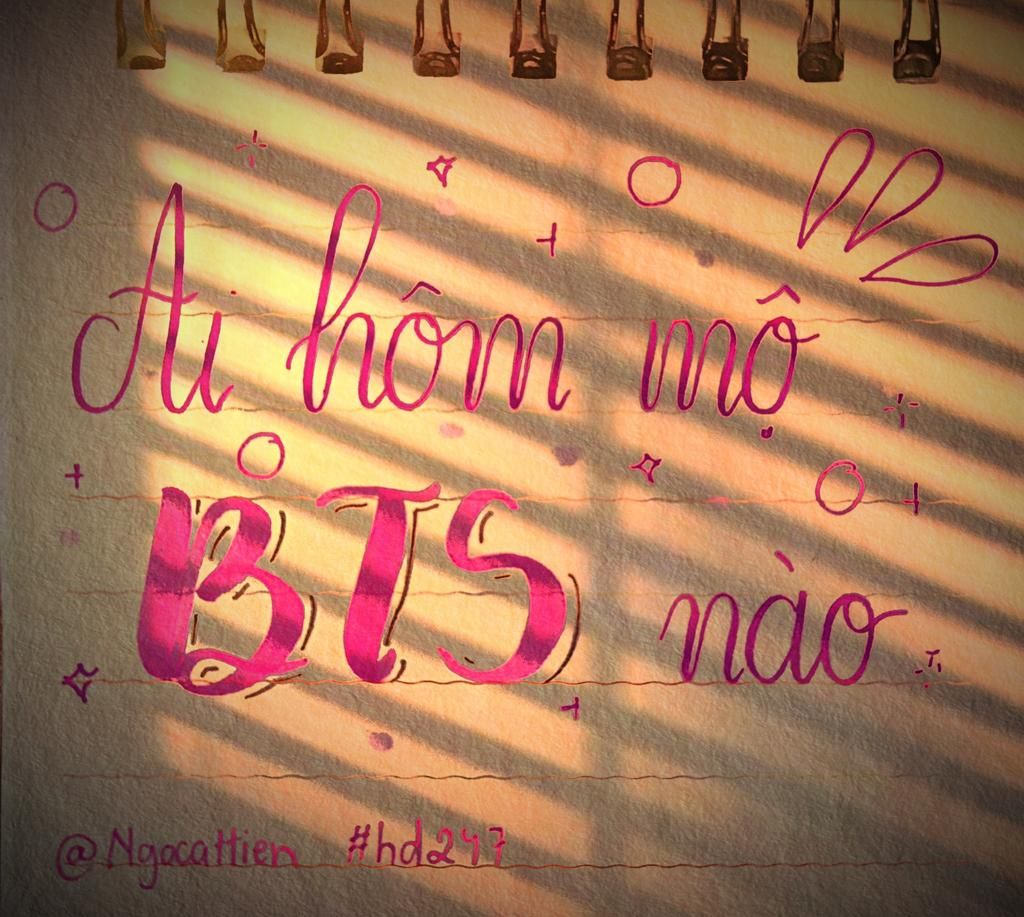 Ai hôm mộ
BTS nào
@Ngocattien #hd247